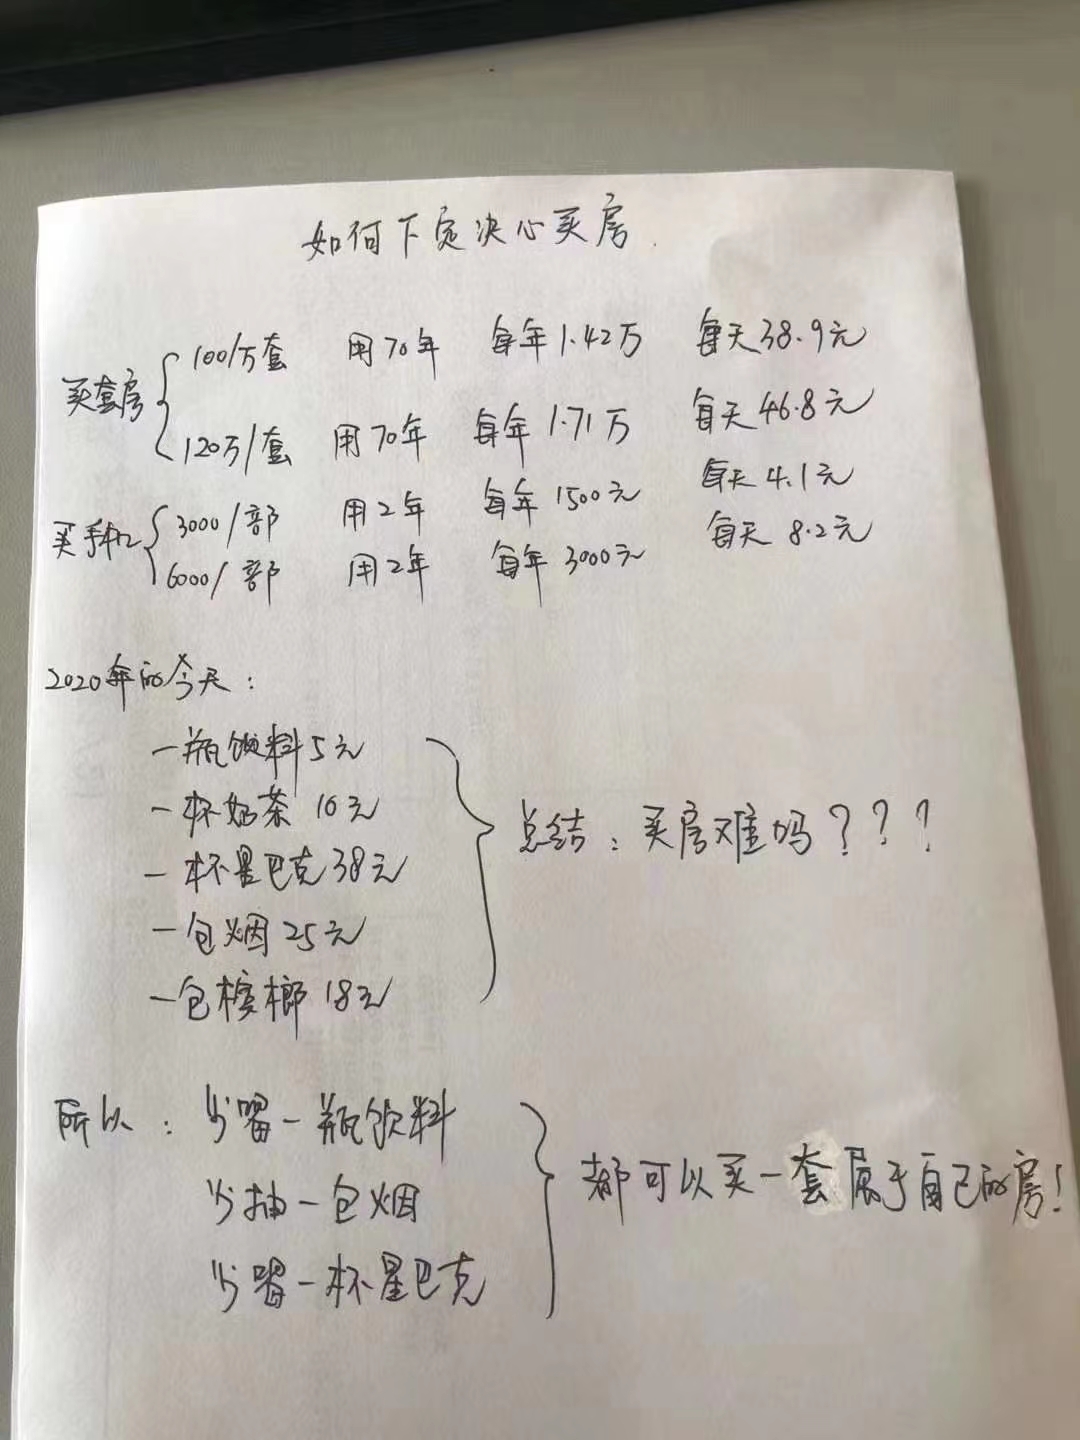 如何下定决心买房.
买套房 100/万套 用70年 每年1.42万 每天38.9元
120万/套 用70年 每年1.71万 每天46.8元
买手机 3000/部 用2年 每年1500元 每天4.1元
6000/部 用2年 每年3000元 每天8.2元
2020年的今天:
一瓶饮料5元
一杯奶茶10元
一杯星巴克38元
一包烟25元
一包槟榔18元
总结:买房难吗???
所以:少喝一瓶饮料
少抽一包烟
少喝一杯星巴克
都可以买一套属于自己的房!